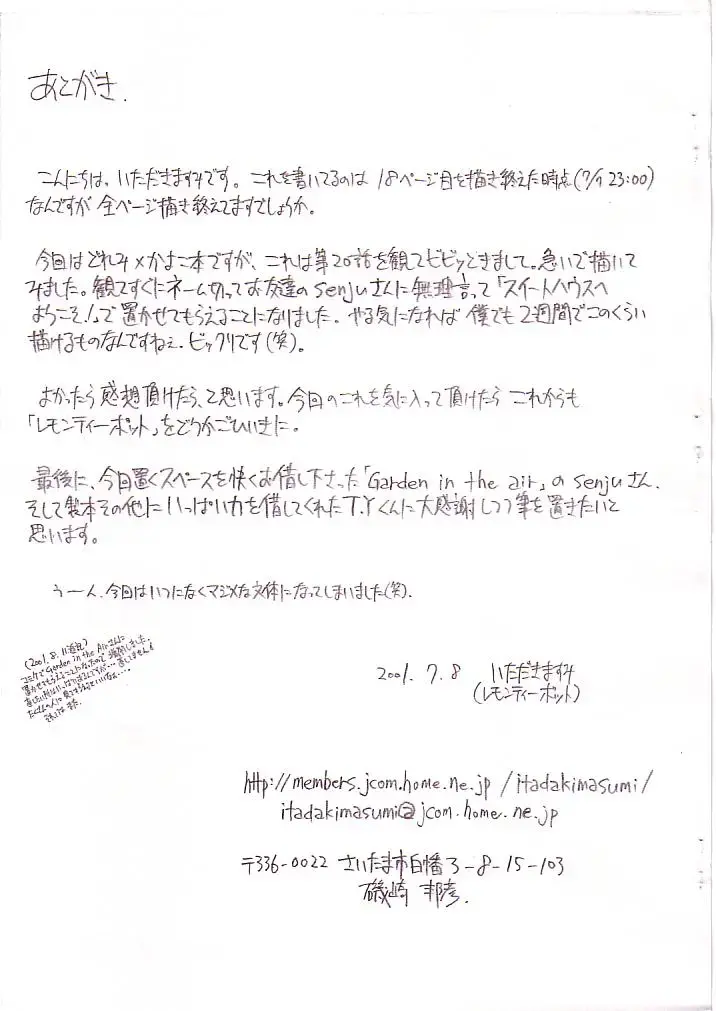 あとがき.
こんにちは、いただきますみです。これを書いてるのは 18ページ目を描き終えた時点(7/7 23:00)
なんですが 全ページ描き終えてますでしょうか。
今回はどれみ×かよこ本ですが、これは第20話を観てビビッときまして。急いで描いて
みました。観てすぐにネーム切ってお友達のsenjuさんに無理言って「スイートハウスへ
ようこそ!」で置かせてもらえることになりました。やる気になれば 僕でも 2週間でこのくらい
描けるものなんですねぇ. ビックリです(笑)。
よかったら感想頂けたら、と思います。今回のこれを気に入って頂けたら これからも
「レモンティーポット」をどうかごひいきに。
最後に、今回置くスペースを快くお借し下さった「Garden in the air」の senjuさん、
そして製本その他に いっぱい力を借してくれた T.Yくんに大感謝しつつ筆を置きたいと
思います。
うーん、今回はいつになくマジメな文体になってしまいました(笑).
(2001.8.11追記)
コミケで Garden in the Airさんに
2001. 7. 8 いただきますみ
(レモンティーポット)
http://members.jcom.home.ne.jp/itadakimasumi/
itadakimasumi@jcom.home.ne.jp
〒336-0022 さいたま市白幡3-8-15-103
磯崎 邦彦.